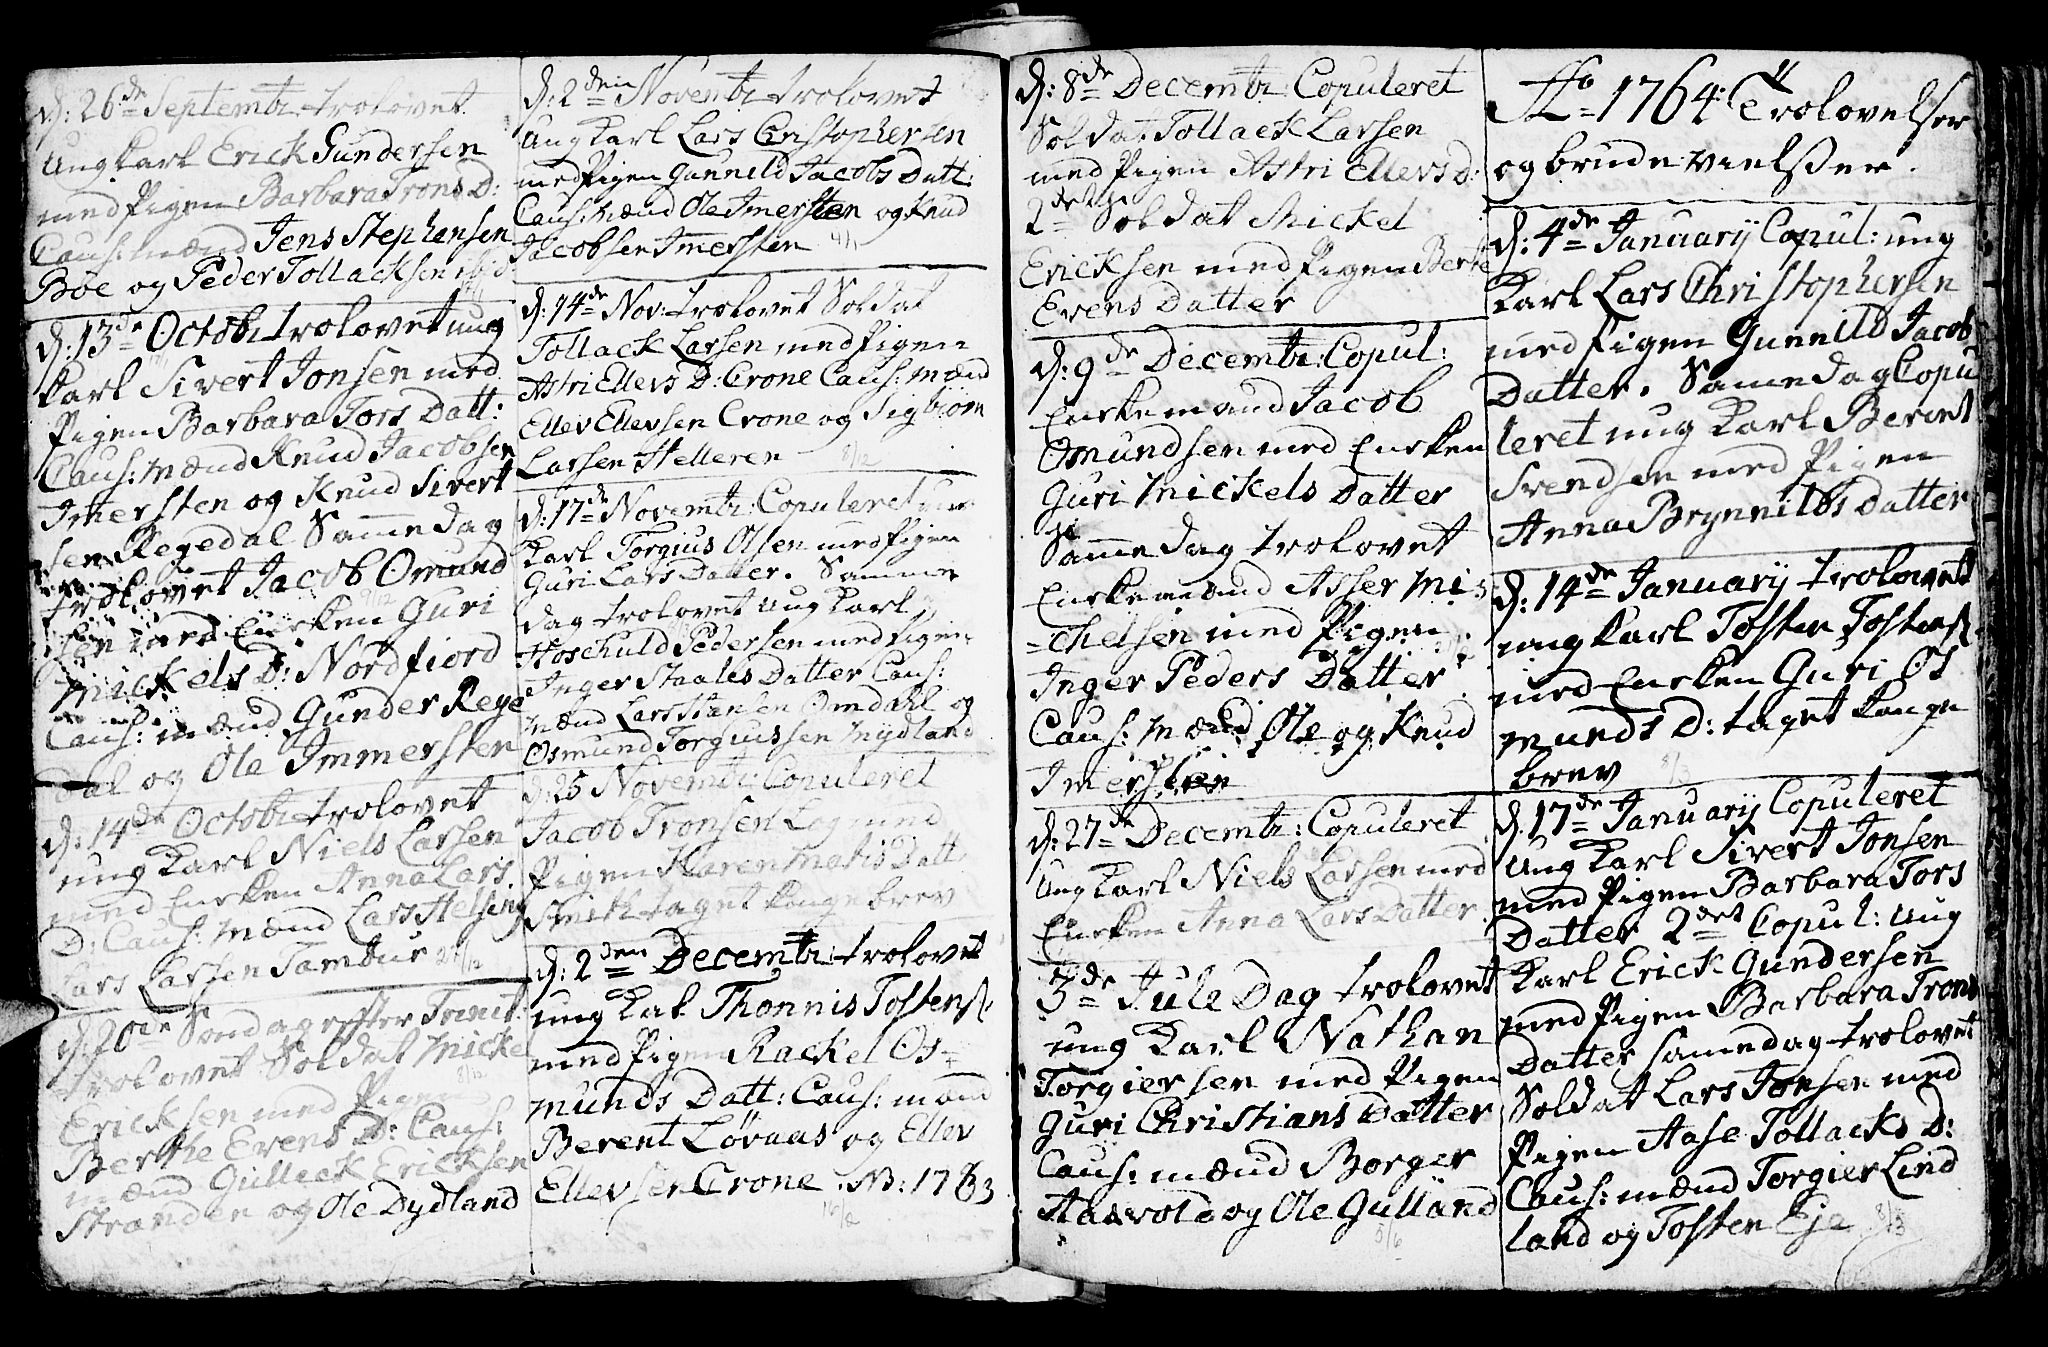 d: 26de Septembr trolovet
ung karl Erick Gundersen
med Pigen Barbara Trons D:
Caus: mænd Jens Stephensen
Bøe og Peder Tollacksen ibid
d: 13de Octobr trolovet ung
karl Sivert Jonsen med
Pigen Barbara Tors Datt:
Caus: mænd Knud Jacobsen
Imersten og Knud Sivert
sen Regedal Samme dag
trolovet Jacob Omund
sen med Enken Guri
Mickels D: Nordfiord
Caus: mænd Gunder Rege
dal og Ole Immersten
d: 14de Octobr trolovet
ung karl Niels Larsen
med Enken Anna Lars
D: Caus: mænd Lars Helsing
Lars Larsen Tambur 27/12
d: 20de Søndag efter Trinit:
trolovet Soldat Micke
Ericksen med Pigen 8/12
Berthe Evens D: Caus:
mænd Gulleck Ericksen
Stranden og Ole Dydland
d: 2den Novembr trolovet
ung karl Lars Christophersen
med Pigen Gunnild Jacobs Datt:
Caus: mænd Ole Imersten og Knud
Jacobsen Imersten 4/1
d: 14de Nov: trolovet Soldat
Tollack Larsen med Pigen
Astri Ellevs D: Crone Caus: mænd
Ellev Ellevsen Crone og Sigbiørn
Larsen Helleren 8/12
d: 17de Novembr: Copuleret ung
karl Torgius Olsen med Pigen
Guri Lars Datter. Samme
dag trolovet ung karl
Hoschuld Pedersen med Pigen
Inger Staales Datter Caus:
mænd Lars Hansen Omdahl og
Osmund Torgiussen Mydland
d: 25 Novembr: Copuleret
Jacob Tronsen Log med
Pigen Karen Matis Datt
Smith taget konge brev
d: 2den Decembr: trolovet
ung kal Thonnis Tostens:
med Pigen Rackel Os=
munds Datt: Caus: mænd
Berent Løvaas og Ellev
Ellevsen Crone N: 1763
16/2
d: 8de Decembr: Copuleret
Soldat Tollack Larsen
med Pigen Astri Ellevs D:
2det Soldat Mickel
Ericksen med Pigen Berte
Evens Datter
d: 9de Decembr: Copul:
Enkemand Jacob
Omundsen med Enken
Guri Mickels Datter
Samme dag trolovet
Enkemand Asser Mi=
=chelsen med Pigen
Inger Peders Datter
Caus: mænd Ole og Knud
Imersten
d: 27de Decembr: Copuleret
ung karl Niels Larsen med
Enken Anna Lars Datter
3de Jule Dag trolovet
ung karl Nathan
Torgiersen med Pigen
Guri Christians Datter
Caus: mænd Borger
Aasvold og Ole Gulland
5/6
Ao 1764 Trolovelser
og brude vielser.
d: 4de January Copul: ung
karl Lars Christophersen
med Pigen Gunnild Jacob
Datter. Samme dag Copu
leret ung karl Berent
Svendsen med Pigen
Anna Brynnilds Datter
d: 14de January trolovet
ung karl Tosten Tostens:
med Enken Guri Os
munds D: taget konge
brev 8/3
d. 17de January Copuleret
ung karl Sivert Jonsen
med Pigen Barbara Tors
Datter 2det Copul: ung
karl Erick Gundersen
med Pigen Barbara Trons
Datter samme dag trolovet
Soldat Lars Tonsen med
Pigen Aase Tollacks D:
Caus: mænd Torgier Lind
land og Tosten Eje 8/3